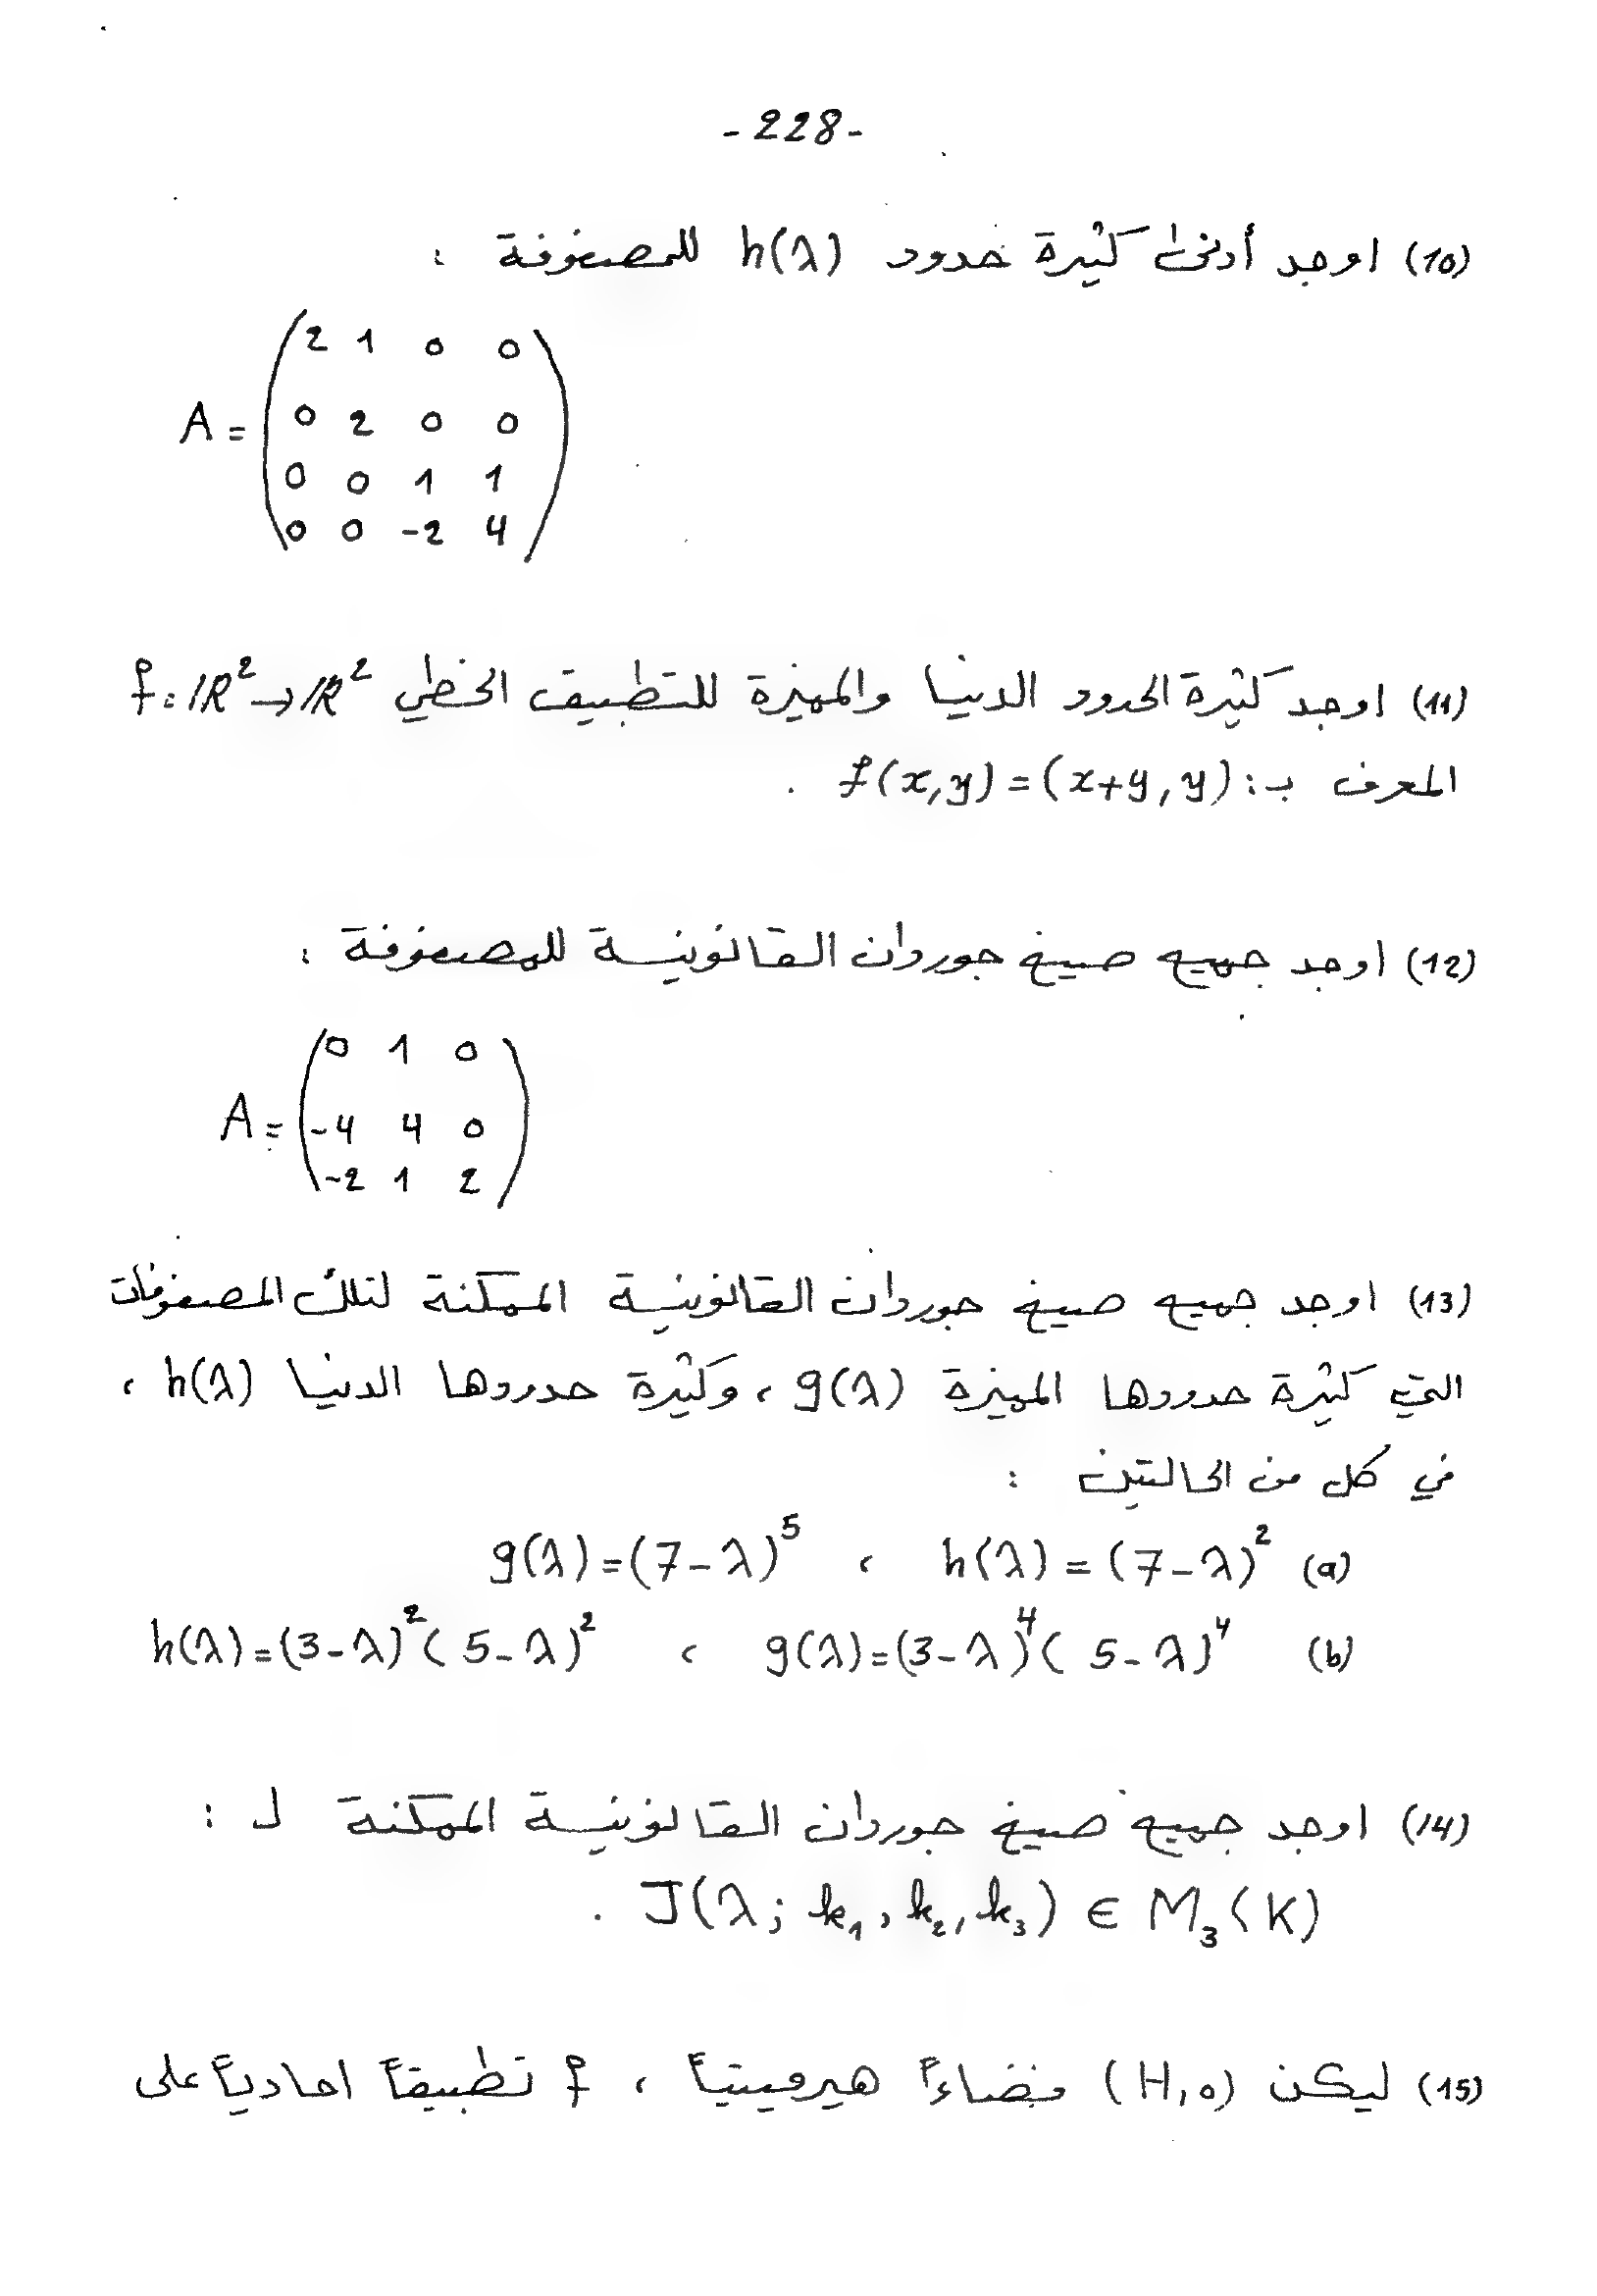 -228-
(10) اوجد أدنى كثيرة حدود h(λ) للمصفوفة :
A = (2 1 0 0
0 2 0 0
0 0 1 1
0 0 -2 4)
(11) اوجد كثيرة الحدود الدنيا والمميزة للتطبيق الخطي f: ℝ² → ℝ²
المعرف بـ : f(x,y) = (x+y, y) .
(12) اوجد جميع صيغ جوردان القانونية للمصفوفة :
A = (0 1 0
-4 4 0
-2 1 2)
(13) اوجد جميع صيغ جوردان القانونية الممكنة لتلك المصفوفات
التي كثيرة حدودها المميزة g(λ) ، وكثيرة حدودها الدنيا h(λ) ،
في كل من الحالتين :
(a) h(λ) = (7-λ)² ، g(λ) = (7-λ)⁵
(b) g(λ) = (3-λ)⁴(5-λ)⁴ ، h(λ) = (3-λ)²(5-λ)²
(14) اوجد جميع صيغ جوردان القانونية الممكنة لـ :
J(λ; k₁, k₂, k₃) ∈ M₃(K) .
(15) ليكن (H,o) فضاءاً هيرميتياً ، f تطبيقاً احادياً على